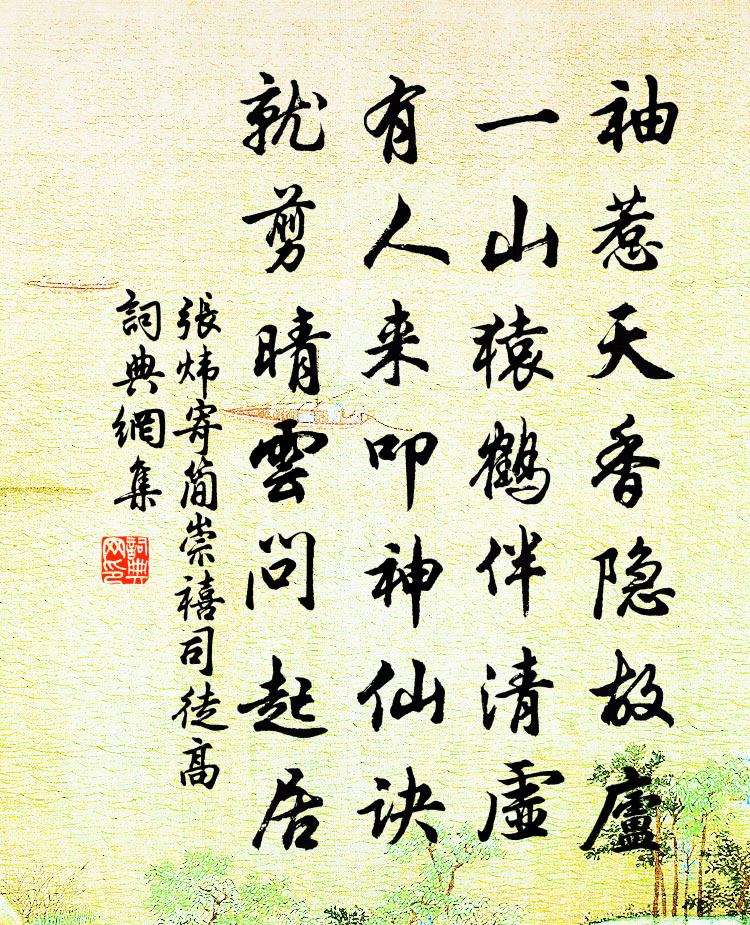 袖惹天香隐故廬
一山猿鶴伴清虛
有人来叩神仙诀
就剪晴雲問起居
張炜寄简崇禧司徒高
詞典網集
詞典
网印